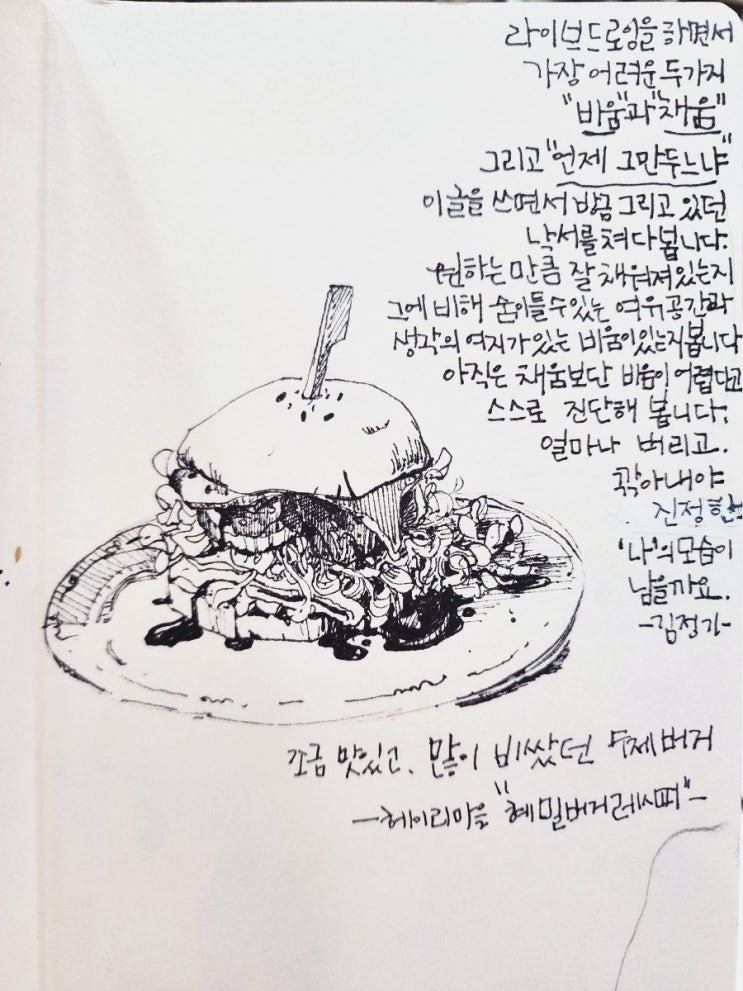 라이브드로잉을 하면서
가장 어려운 두가지
"비움"과 "채움"
그리고 "언제 그만두느냐"
이글을 쓰면서 방금 그리고 있던
낙서를 쳐다봅니다.
원하는 만큼 잘 채워져있는지
그에 비해 숨이들수있는 여유공간과
생각의 여지가 있는 비움이있는지봅니다
아직은 채움보단 비움이 어렵다고
스스로 진단해 봅니다.
얼마나 버리고.
깎아내야
진정한
'나'의 모습이
남을까요.
-김정기-
조금 맛있고. 많이 비쌌던 수제버거
-헤이리마을 "혜밀버거레시피"-